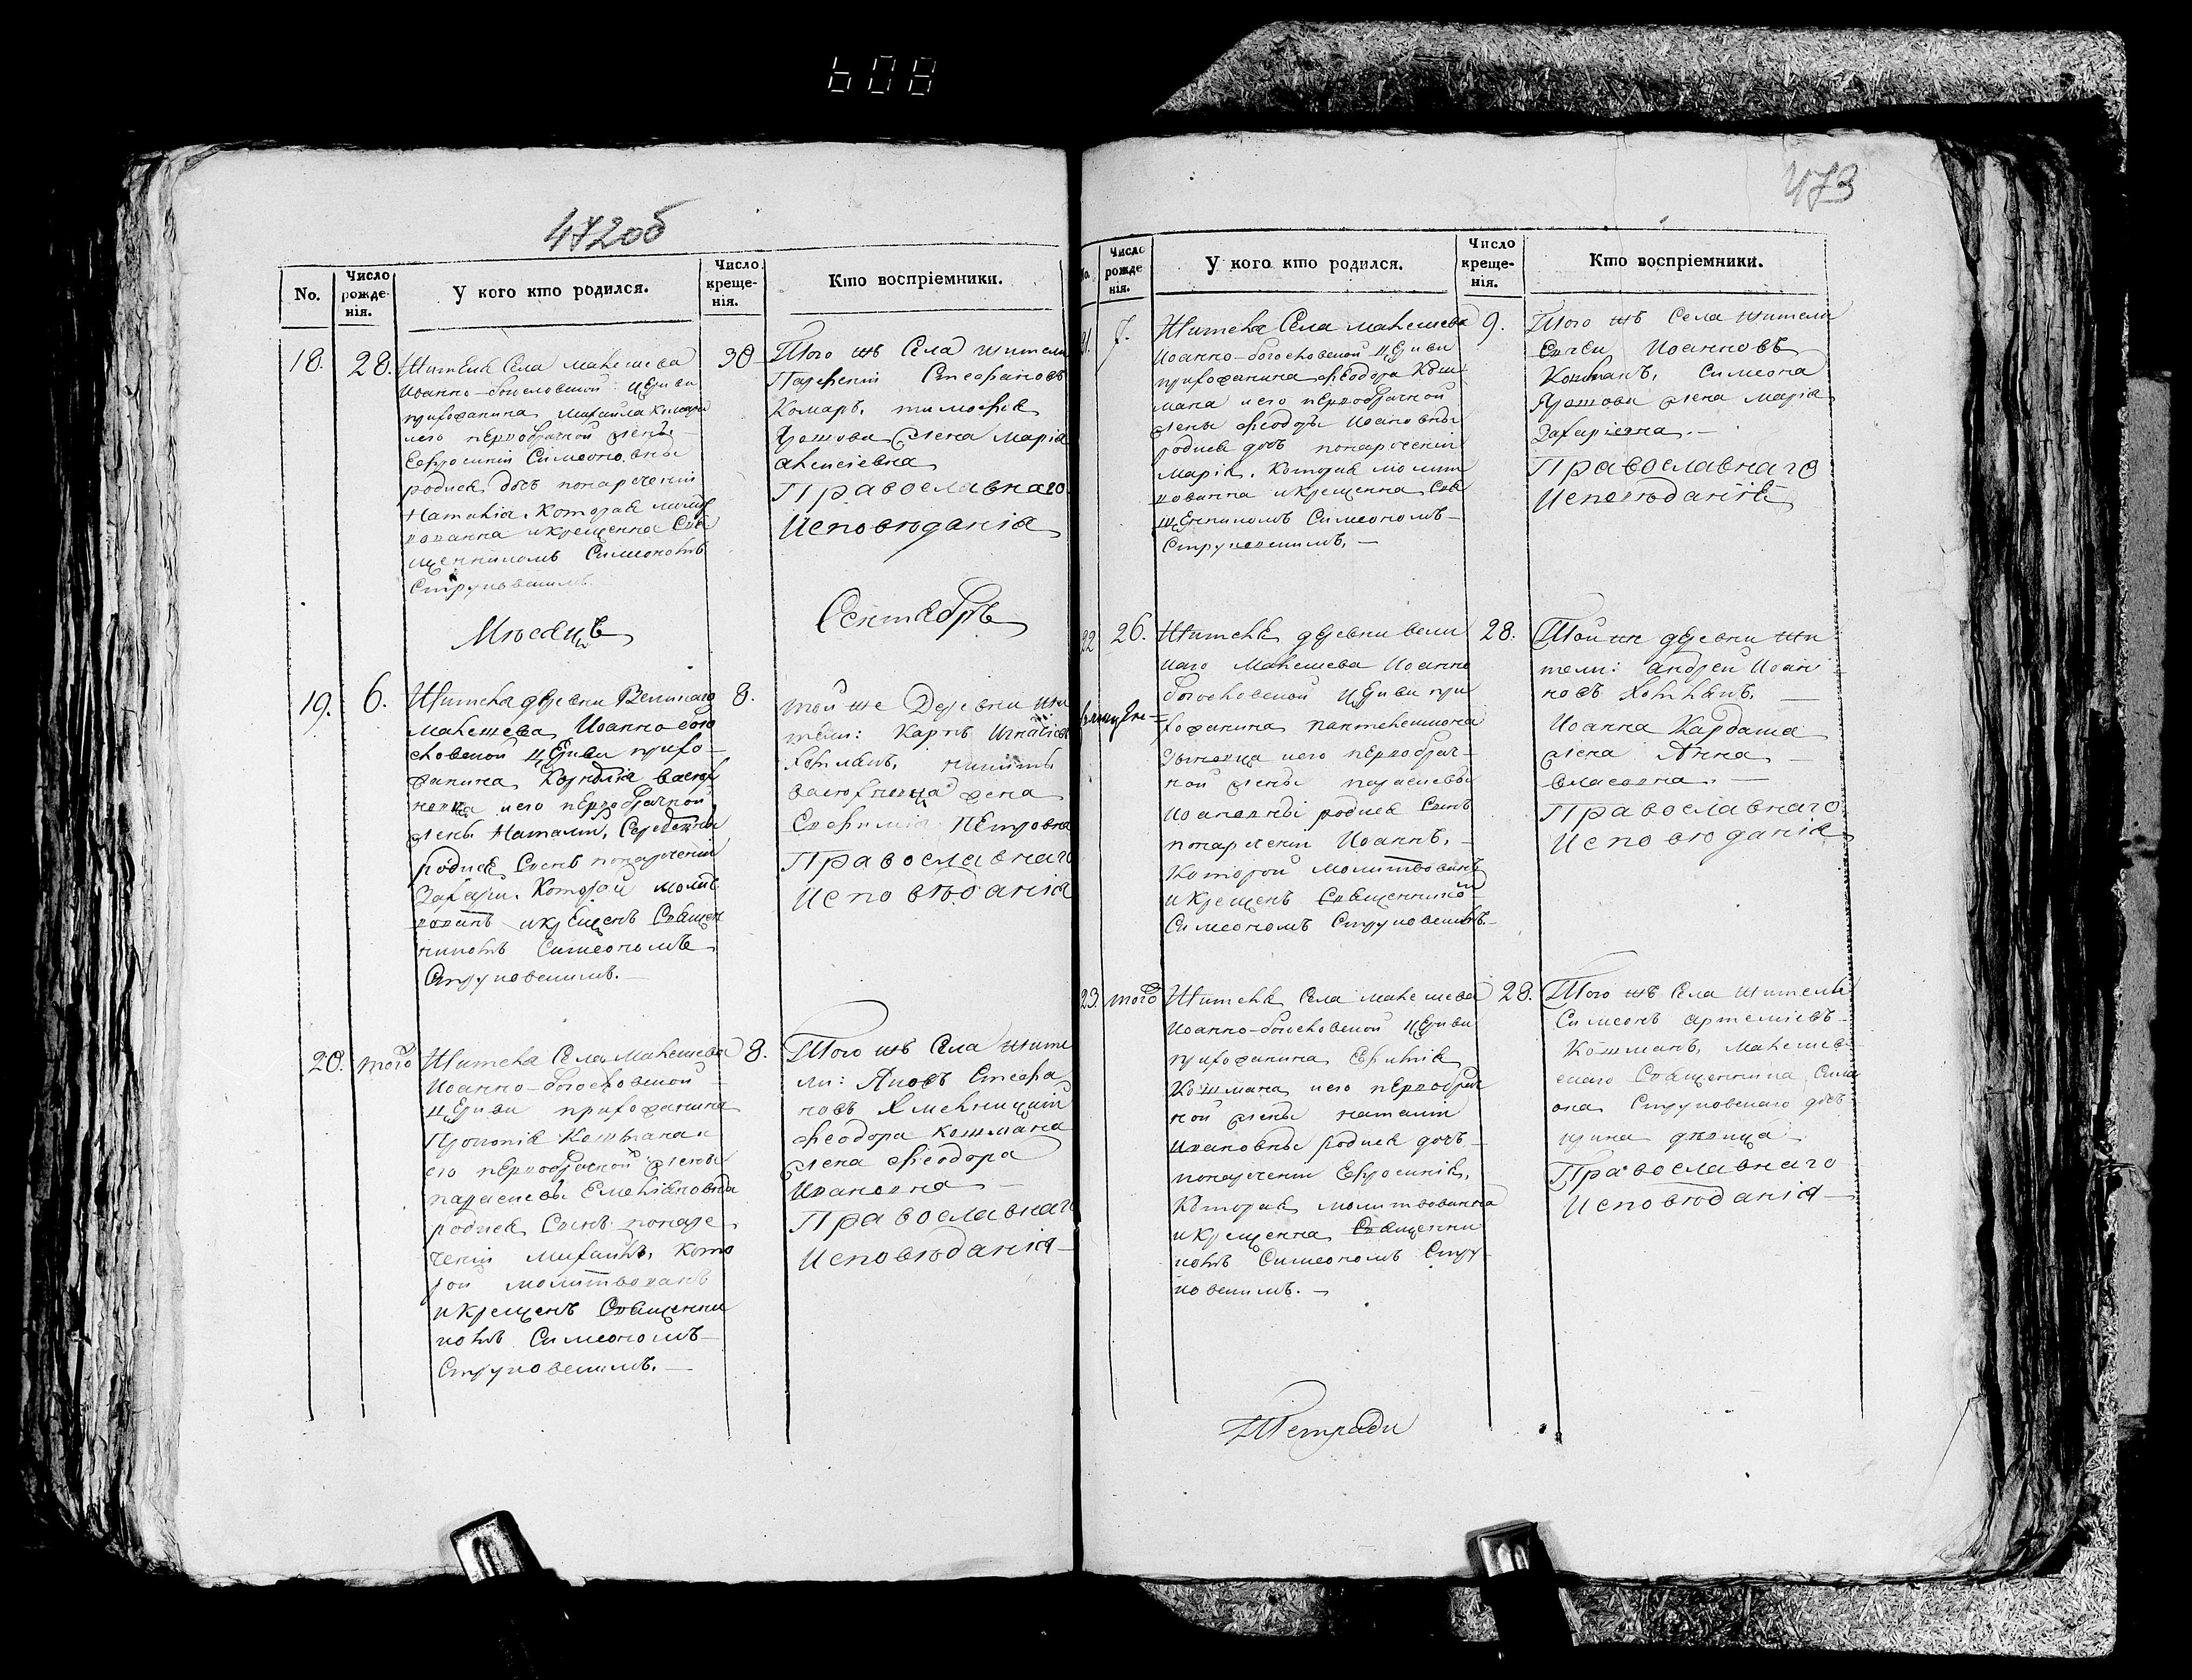 608
472об
No.
Число рожде-нія.
У кого кто родился.
Число креще-нія.
Кто воспріемники.
18.
28.
Жителя Села макешева
Иоанно-богословской церкви
прихожанина михаила комара
иего первобрачной жены
Евфросиніи Симеоновны
родися дочь понареченіи
Наталія. Которая молит
вованна икрещенна Свя
щенникомъ Симеономъ
Струковскимъ.
30
Того жъ Села жители
Парфеній Стефановъ
Комаръ, тимофея
Ярошова жена Марія
алексіевна
Православнаго
Исповѣданія
Мѣсяцъ
Сентябрь
19.
6.
Жителя деревни Великаго
макешева Иоанно бого
словской церкви прихо-
жанина
иего первобрачной
жены Наталіи
родися Сынъ понареченіи
Захарій. Который молит
вованъ икрещенъ Священ
никомъ Симеономъ
Струковскимъ.
8.
той же Деревни жи
тели: Карпъ Игнатіев
никиты
жена
Евфимія Петровна
Православнаго
Исповѣданія
20.
того
Жителя Села Макешева
Иоанно-богословской
церкви прихожанина
Прокопія Кошмана и
его первобрачной жены
параскевы Емеліановны
родися Сынъ понаре
ченіи михаилъ, Кото
рой молитвованъ
икрещенъ Священни
комъ Симеономъ
Струковскимъ.
8.
Того жъ Села жите
ли: Яковъ Стефа
новъ Хмельницкій
Феодора кошмана
жена Феодора
Ивановна
Православнаго
Исповѣданія
473
No.
Число рожде нія.
У кого кто родился.
Число креще-нія.
Кто воспріемники.
21.
7.
Жителя Села макешева
Иоанно-богословской церкви
прихожанина Феодора Кош
мана иего первобрачной
жены Феодоры Иоановны
родися дочь понареченіи
марія. Которая молит
вованна икрещенна Свя
щенникомъ Симеономъ
Струковскимъ.
9.
Того жъ Села жители
Иоанновъ
Кошманъ, Симеона
Ярошова жена марія
Захаріевна.
Православнаго
Исповѣданія
22
26.
Жителя деревни вели
каго Макешева Иоанно
богословской церкви при
хожанина пантелеимона
иего первобрач-
ной жены параскевы
Иоановны родися Сынъ
понареченіи Иоаннъ.
Которой молитвованъ
икрещенъ Священником
Симеономъ Струковскимъ
28.
Той же деревни жи
тели: андрей Иоан
новъ
Иоанна Кардаша
жена Анна
власовна.
Православнаго
Исповѣданія
23.
того
Жителя Села макешева
Иоанно-богословской церкви
прихожанина
Кошмана иего первобрач
ной жены наталіи
Ивановны родися дочь
понареченіи Евфросинія,
Которая молитвованна
икрещенна Священни
комъ Симеономъ Стру
ковскимъ.
28.
Того жъ Села жители
Симеонъ артеміевъ
Кошманъ, макешев
скаго Священника Симе
она Струковскаго доч
дѣвица
Православнаго
Исповѣданія
Тетради